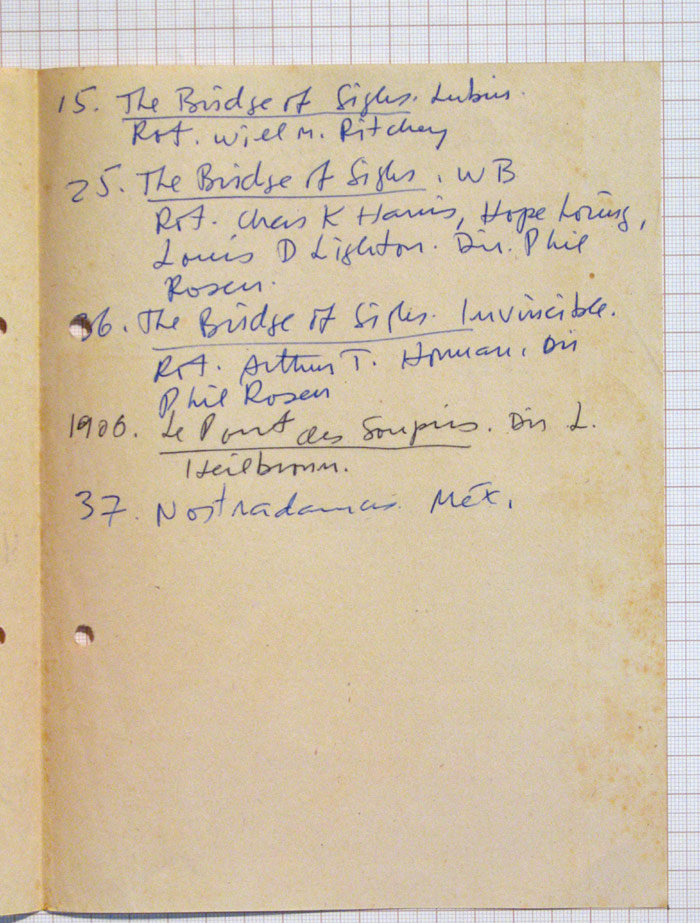 15. The Bridge of Sighs. Lubin.
Rot. Will M. Ritchey
25. The Bridge of Sighs. WB
Rot. Chas K Harris, Hope Loring,
Louis D Lighton. Dir. Phil
Rosen.
36. The Bridge of Sighs. Invincible.
Rot. Arthur T. Horman. Dir
Phil Rosen
1906. Le Pont des Soupirs. Dir L.
Heilbronn.
37. Nostradamus. Méx.